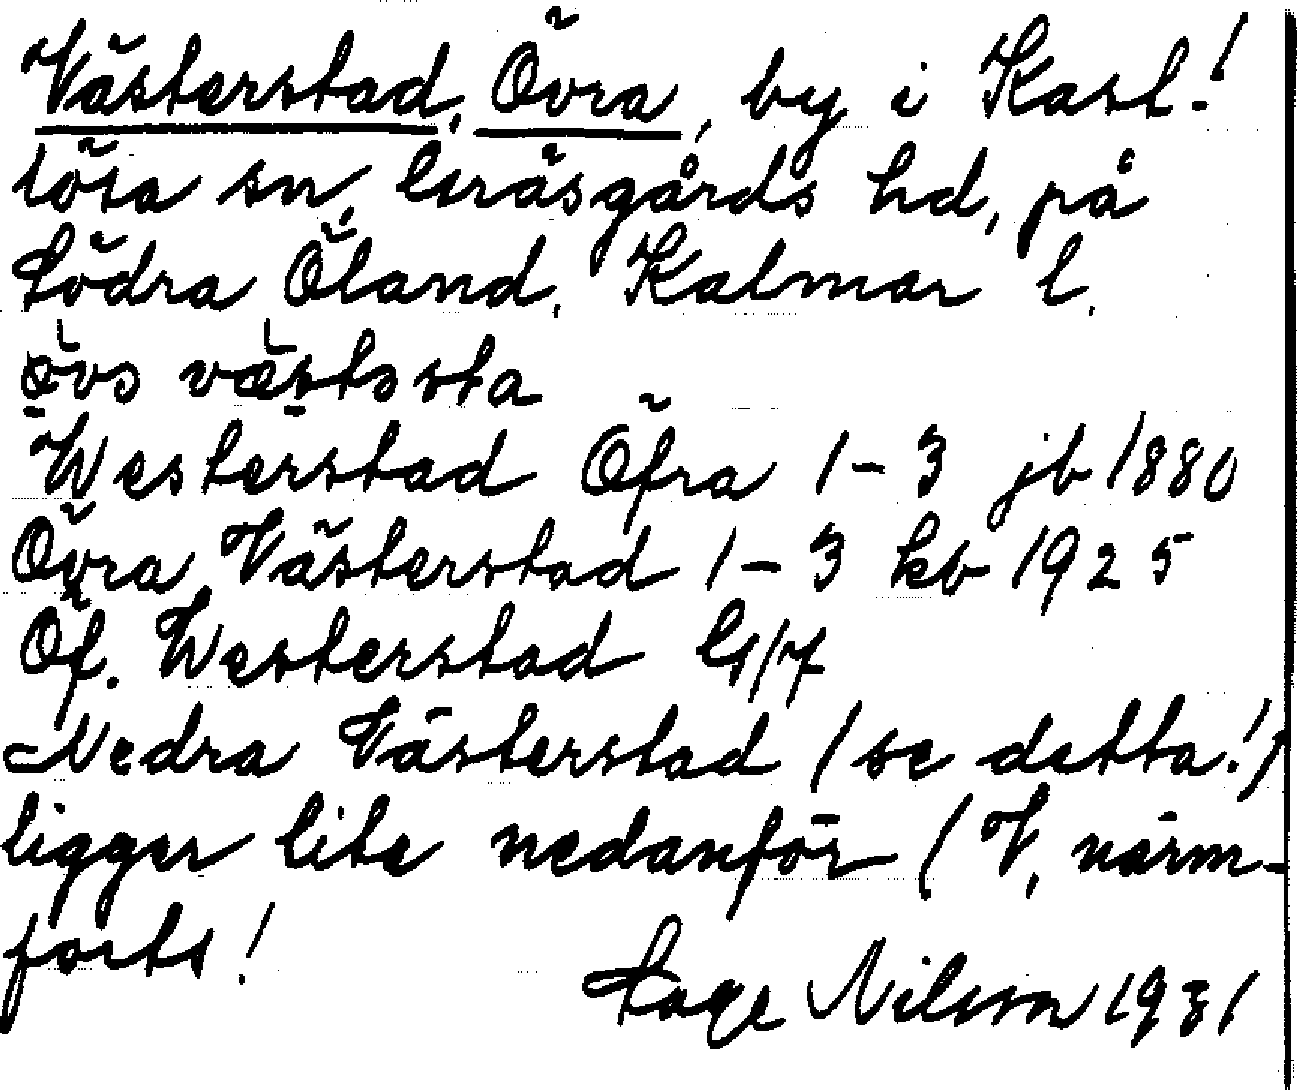 Västerstad, Övra, by i Kast-!
lösa sn, Gräsgårds hd, på
Södra Öland, Kalmar l.
Westerstad Öfra 1-3 jb 1880
Övra Västerstad 1-3 kb 1925
Öf. Westerstad
Nedra Västerstad (se detta!)
ligger lite nedanför (V. närm-
forts!
Sage Nilsson 1931